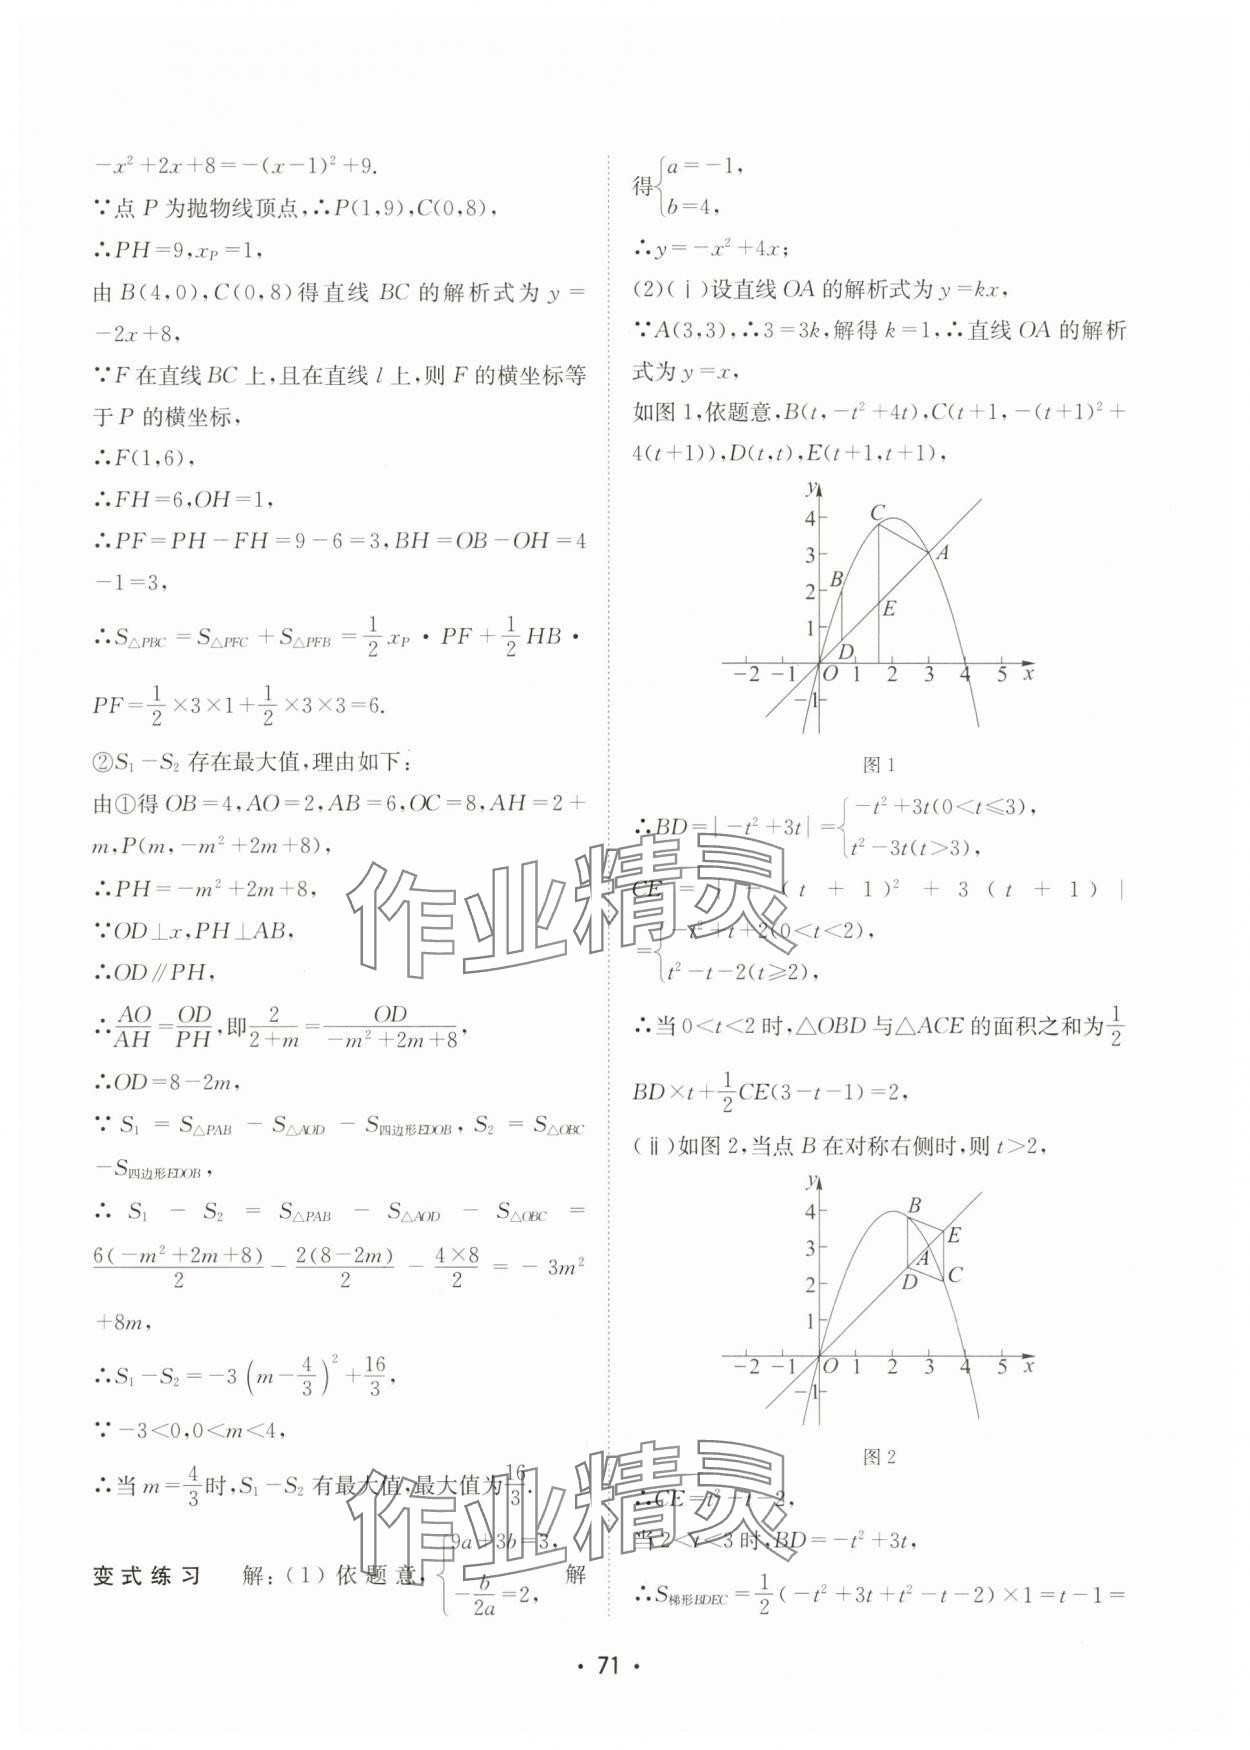 -x²+2x+8=-(x-1)²+9.
∵点 P 为抛物线顶点,∴P(1,9),C(0,8),
∴PH=9,x_P=1,
由 B(4,0),C(0,8)得直线 BC 的解析式为 y=
-2x+8,
∵F 在直线 BC 上,且在直线 l 上,则 F 的横坐标等
于 P 的横坐标,
∴F(1,6),
∴FH=6,OH=1,
∴PF=PH-FH=9-6=3,BH=OB-OH=4
-1=3,
∴S△PBC=S△PFC+S△PFB=1/2 x_P·PF+1/2 HB·
PF=1/2×3×1+1/2×3×3=6.
②S₁-S₂ 存在最大值,理由如下:
由①得 OB=4,AO=2,AB=6,OC=8,AH=2+
m,P(m,-m²+2m+8),
∴PH=-m²+2m+8,
∵OD⊥x,PH⊥AB,
∴OD∥PH,
∴AO/AH=OD/PH,即2/(2+m)=OD/(-m²+2m+8),
∴OD=8-2m,
∵S₁=S△PAB-S△AOD-S四边形EDOB,S₂=S△OBC
-S四边形EDOB,
∴S₁-S₂=S△PAB-S△AOD-S△OBC=
6(-m²+2m+8)/2-2(8-2m)/2-4×8/2=-3m²
+8m,
∴S₁-S₂=-3(m-4/3)²+16/3,
∵-3<0,0<m<4,
∴当 m=4/3时,S₁-S₂ 有最大值,最大值为16/3.
变式练习 解:(1)依题意,{9a+3b=3, -b/2a=2, 解
得{a=-1, b=4,
∴y=-x²+4x;
(2)(ⅰ)设直线 OA 的解析式为 y=kx,
∵A(3,3),∴3=3k,解得 k=1,∴直线 OA 的解析
式为 y=x,
如图 1,依题意,B(t,-t²+4t),C(t+1,-(t+1)²+
4(t+1)),D(t,t),E(t+1,t+1),
y
4
3
2
1
-1
-2 -1 O 1 2 3 4 5 x
B
C
A
E
D
图 1
∴BD=|-t²+3t|={-t²+3t(0<t≤3), t²-3t(t>3),
CE=|-(t+1)²+3(t+1)|
={-t²+t+2(0<t<2), t²-t-2(t≥2),
∴当 0<t<2 时,△OBD 与△ACE 的面积之和为1/2
BD×t+1/2CE(3-t-1)=2,
(ⅱ)如图 2,当点 B 在对称右侧时,则 t>2,
y
4
3
2
1
-1
-2 -1 O 1 2 3 4 5 x
B
E
A
D
C
图 2
∴CE=t²-t-2,
当 2<t<3 时,BD=-t²+3t,
∴S梯形BDEC=1/2(-t²+3t+t²-t-2)×1=t-1=
· 71 ·
作业精灵
作业精灵